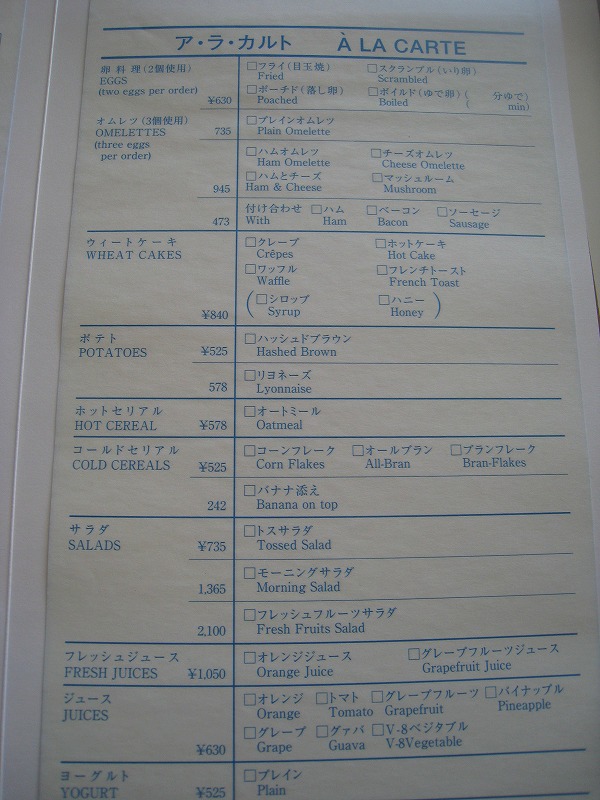 ア・ラ・カルト　À LA CARTE
卵料理(2個使用)
EGGS
(two eggs per order)
¥630
□フライ(目玉焼) □スクランブル(いり卵)
Fried Scrambled
□ポーチド(落し卵) □ボイルド(ゆで卵)( 分ゆで)
Poached Boiled ( min)
オムレツ(3個使用)
OMELETTES
(three eggs
per order)
735
□プレインオムレツ
Plain Omelette
□ハムオムレツ □チーズオムレツ
Ham Omelette Cheese Omelette
□ハムとチーズ □マッシュルーム
Ham & Cheese Mushroom
945
473
付け合わせ □ハム □ベーコン □ソーセージ
With Ham Bacon Sausage
ウィートケーキ
WHEAT CAKES
¥840
□クレープ □ホットケーキ
Crêpes Hot Cake
□ワッフル □フレンチトースト
Waffle French Toast
(□シロップ □ハニー)
Syrup Honey
ポテト
POTATOES ¥525
□ハッシュドブラウン
Hashed Brown
578
□リヨネーズ
Lyonnaise
ホットセリアル
HOT CEREAL ¥578
□オートミール
Oatmeal
コールドセリアル
COLD CEREALS ¥525
□コーンフレーク □オールブラン □ブランフレーク
Corn Flakes All-Bran Bran-Flakes
242
□バナナ添え
Banana on top
サラダ
SALADS ¥735
□トスサラダ
Tossed Salad
1,365
□モーニングサラダ
Morning Salad
2,100
□フレッシュフルーツサラダ
Fresh Fruits Salad
フレッシュジュース
FRESH JUICES ¥1,050
□オレンジジュース □グレープフルーツジュース
Orange Juice Grapefruit Juice
ジュース
JUICES
¥630
□オレンジ □トマト □グレープフルーツ □パイナップル
Orange Tomato Grapefruit Pineapple
□グレープ □グァバ □V-8ベジタブル
Grape Guava V-8Vegetable
ヨーグルト
YOGURT ¥525
□プレイン
Plain